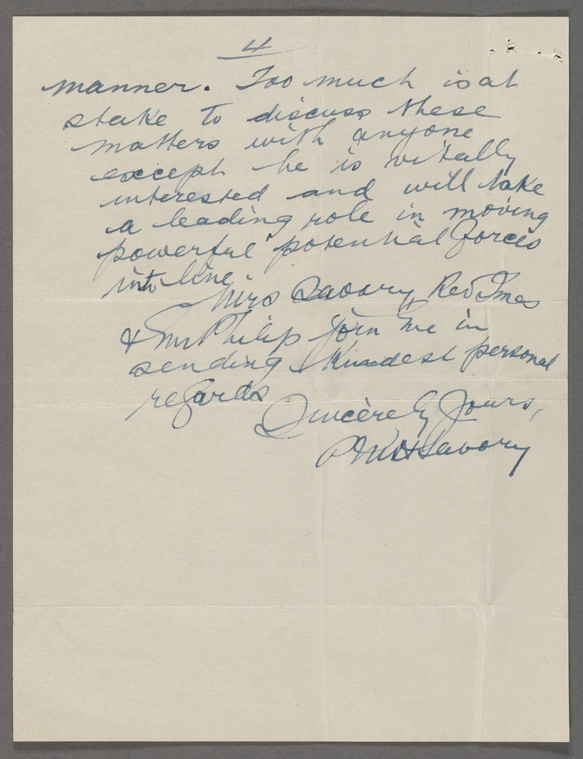 4
manner. Too much is at
stake to discuss these
matters with anyone
except he is vitally
interested and will take
a leading role in moving
powerful potential forces
into line.
Mrs Savory, Rev Imes
& Mr Philip join me in
sending kindest personal
regards
Sincerely Yours,
P M H Savory